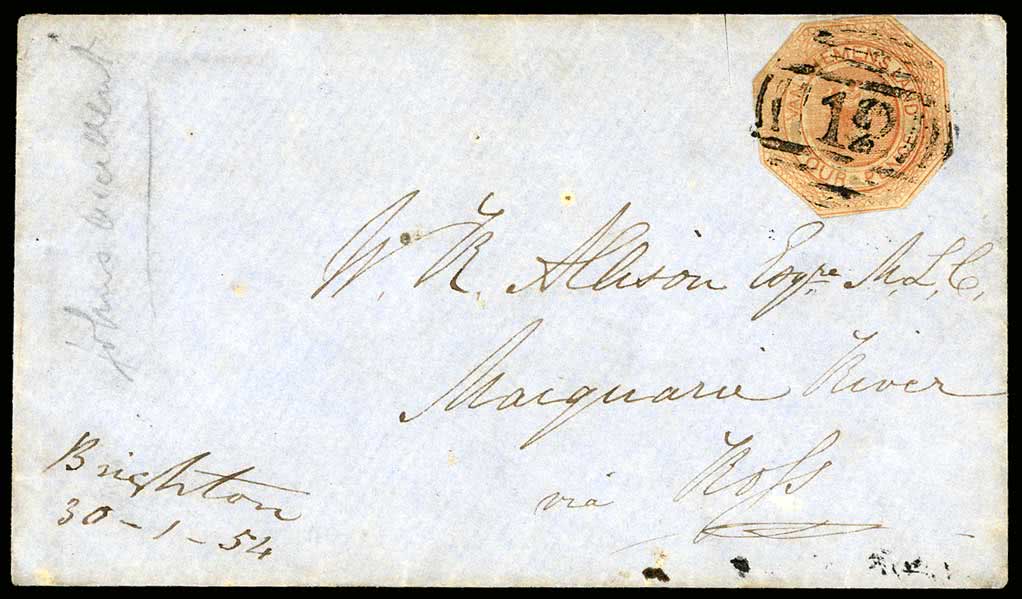 VAN DIEMEN'S LAND
12
FOUR PENCE
W. R. Allison Esqre M.L.C.
Macquarie River
via Ross
Brighton
30-1-54
John's accident